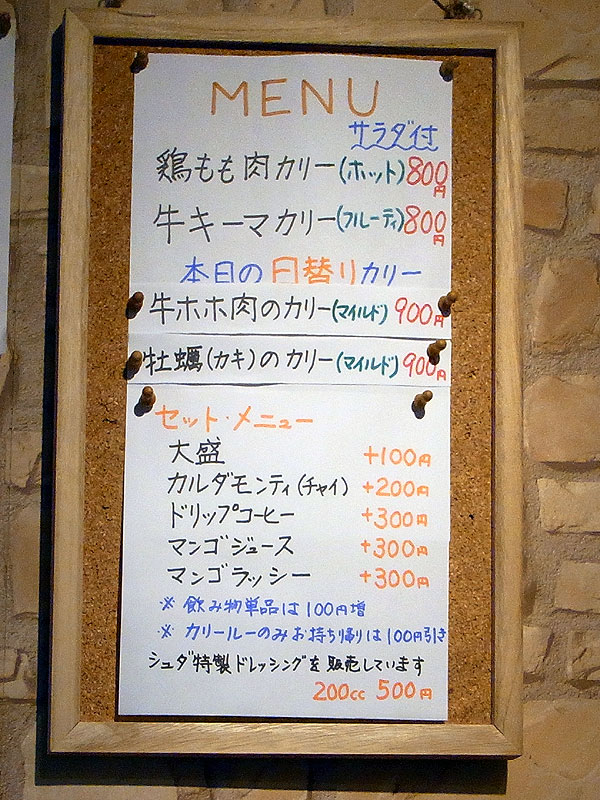 MENU
サラダ付
鶏もも肉カリー(ホット)800円
牛キーマカリー(フルーティ)800円
本日の日替りカリー
牛ホホ肉のカリー(マイルド)900円
牡蠣(カキ)のカリー(マイルド)900円
セット・メニュー
大盛 +100円
カルダモンティ(チャイ) +200円
ドリップコーヒー +300円
マンゴジュース +300円
マンゴラッシー +300円
※ 飲み物単品は100円増
※ カリールーのみお持ち帰りは100円引き
シュダ特製ドレッシングを販売しています
200cc 500円